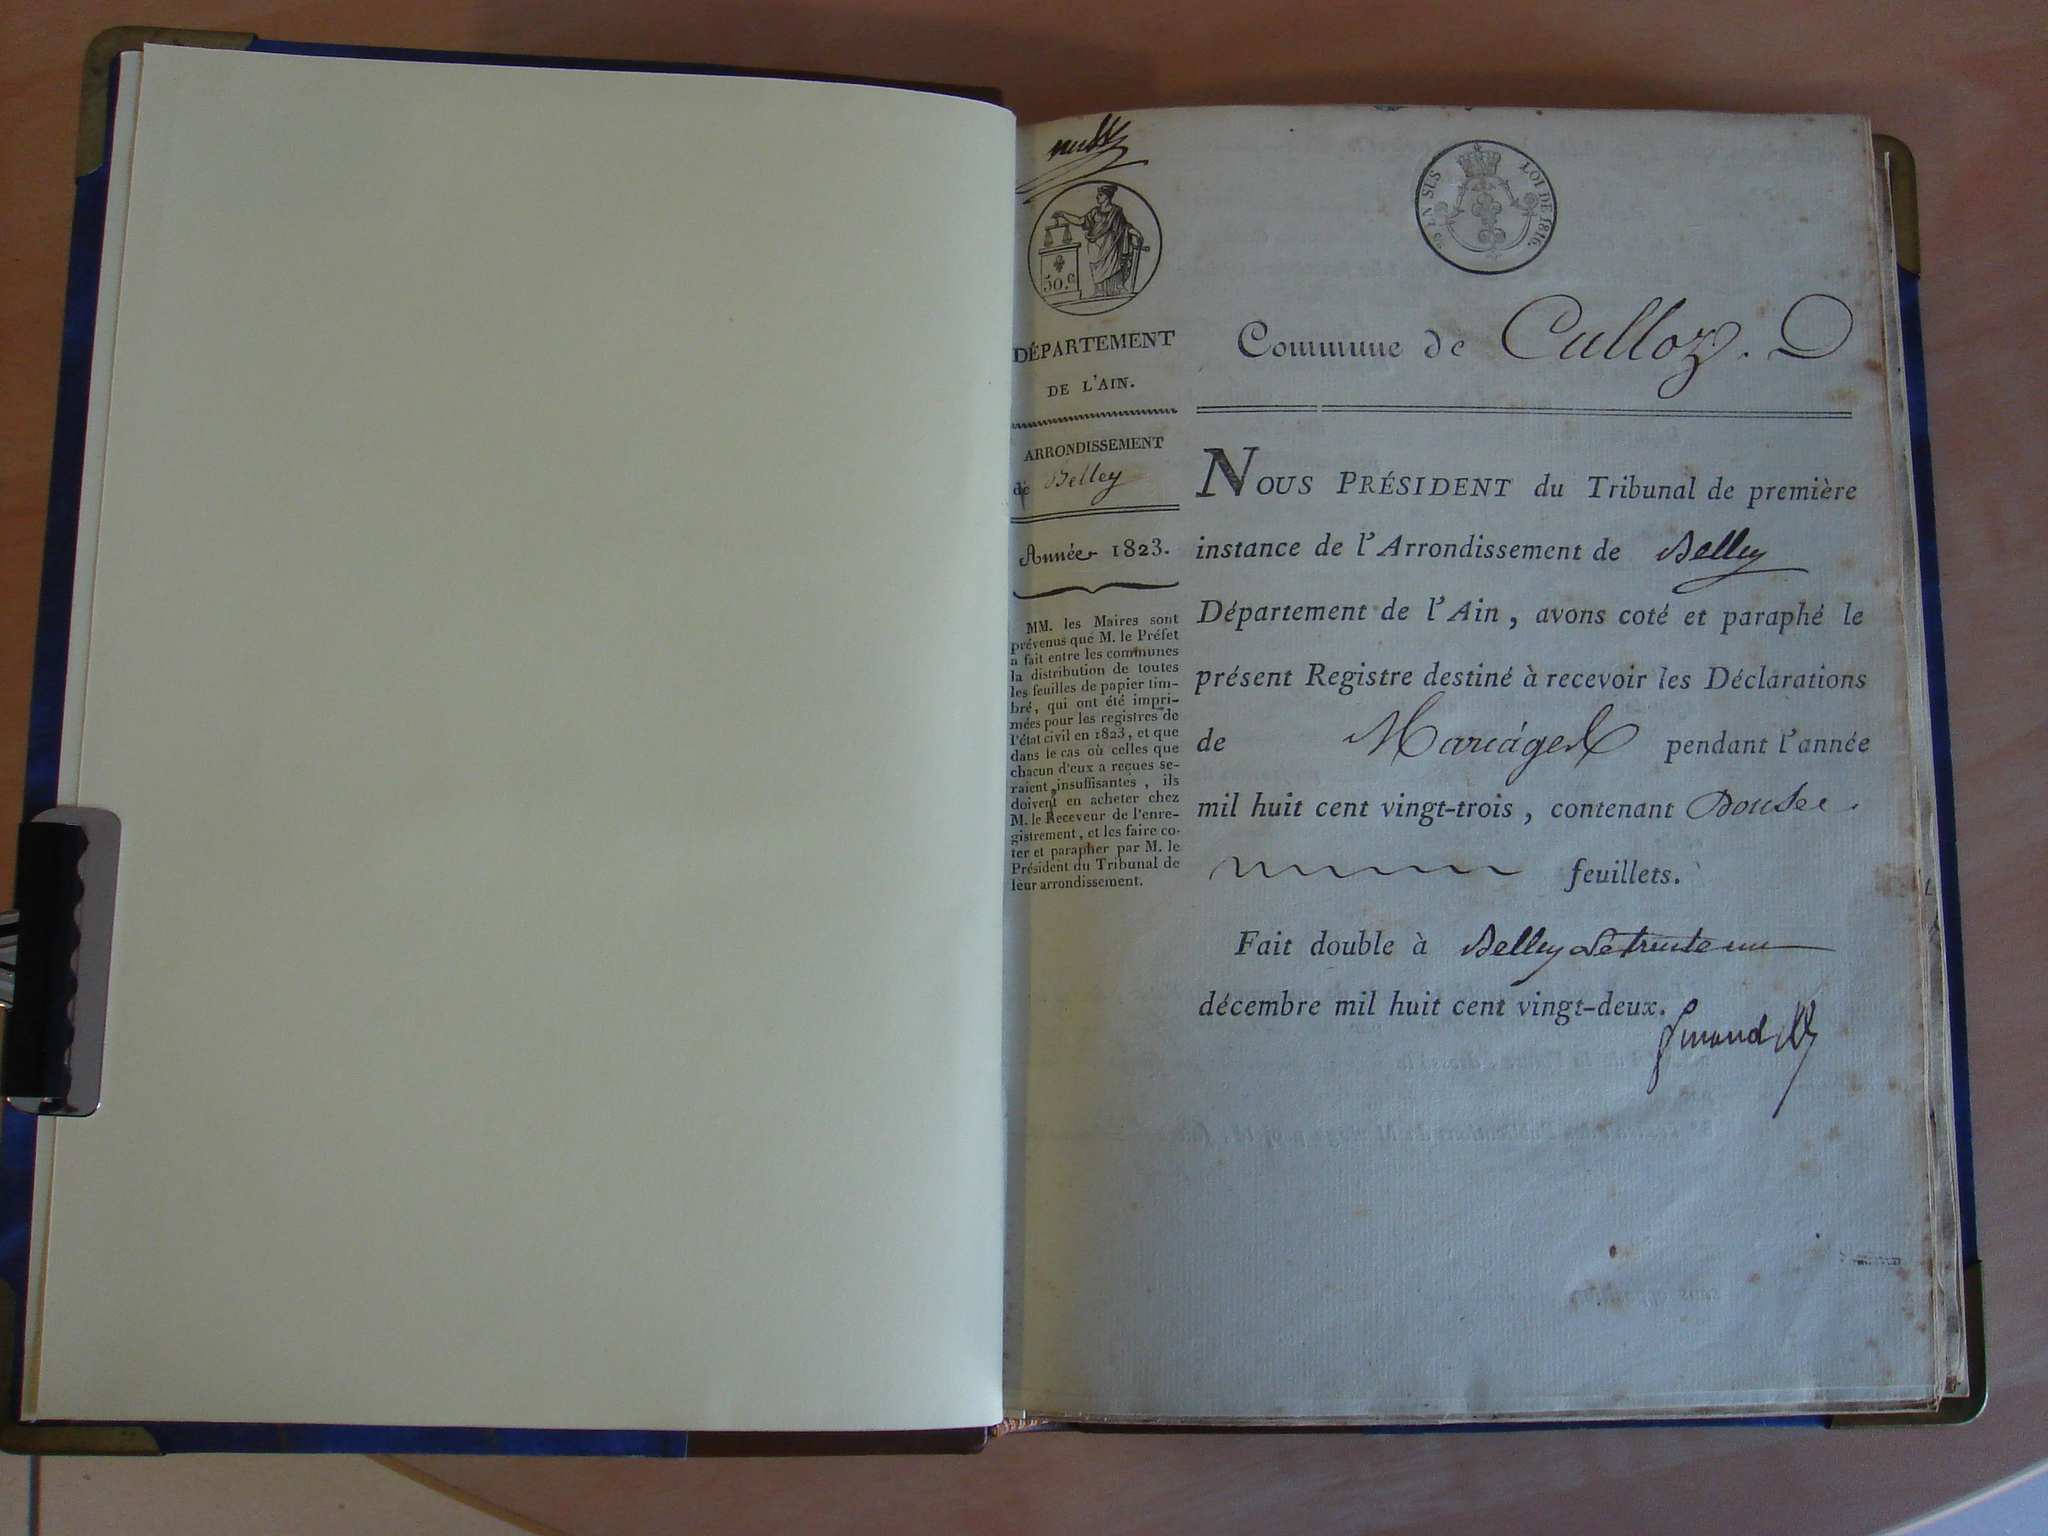 50.c
EN SUS LOI DE 1816.
DÉPARTEMENT
DE L'AIN.
ARRONDISSEMENT
de Belley
Année 1823.
MM. les Maires sont
prévenus que M. le Préfet
a fait entre les communes
la distribution de toutes
les feuilles de papier tim-
bré, qui ont été impri-
mées pour les registres de
l'état civil en 1823, et que
dans le cas où celles que
chacun d'eux a reçues se-
raient insuffisantes, ils
doivent en acheter chez
M. le Receveur de l'enre-
gistrement, et les faire co-
ter et parapher par M. le
Président du Tribunal de
leur arrondissement.
Commune de Culloz.
NOUS PRÉSIDENT du Tribunal de première
instance de l'Arrondissement de Belley
Département de l'Ain, avons coté et paraphé le
présent Registre destiné à recevoir les Déclarations
de Mariages pendant l'année
mil huit cent vingt-trois, contenant Douse
feuillets.
Fait double à Belley le trente un
décembre mil huit cent vingt-deux.